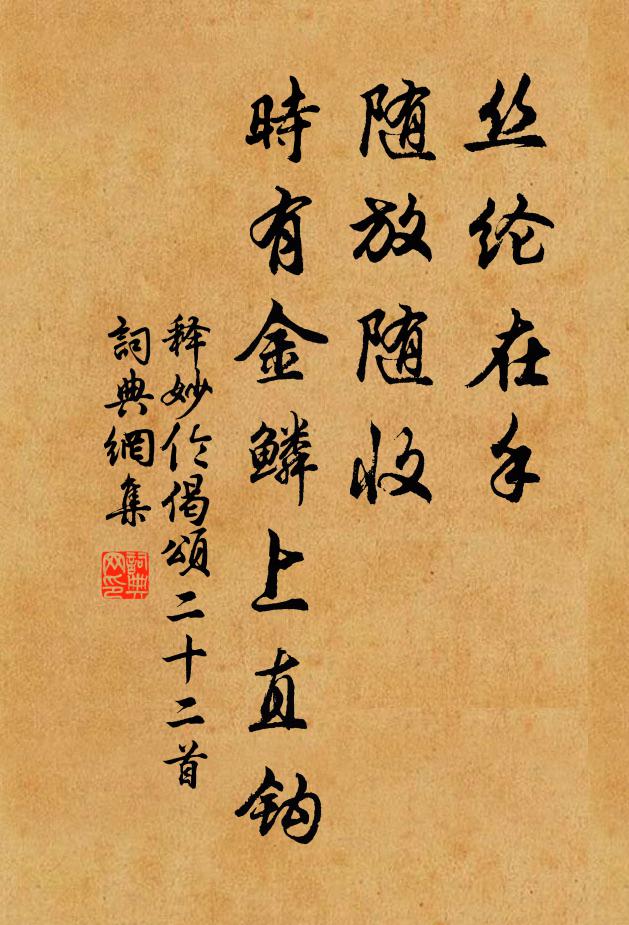 丝纶在手
随放随收
時有金鳞上直钩
释妙伦偈頌二十二首
詞典網集
詞典网印